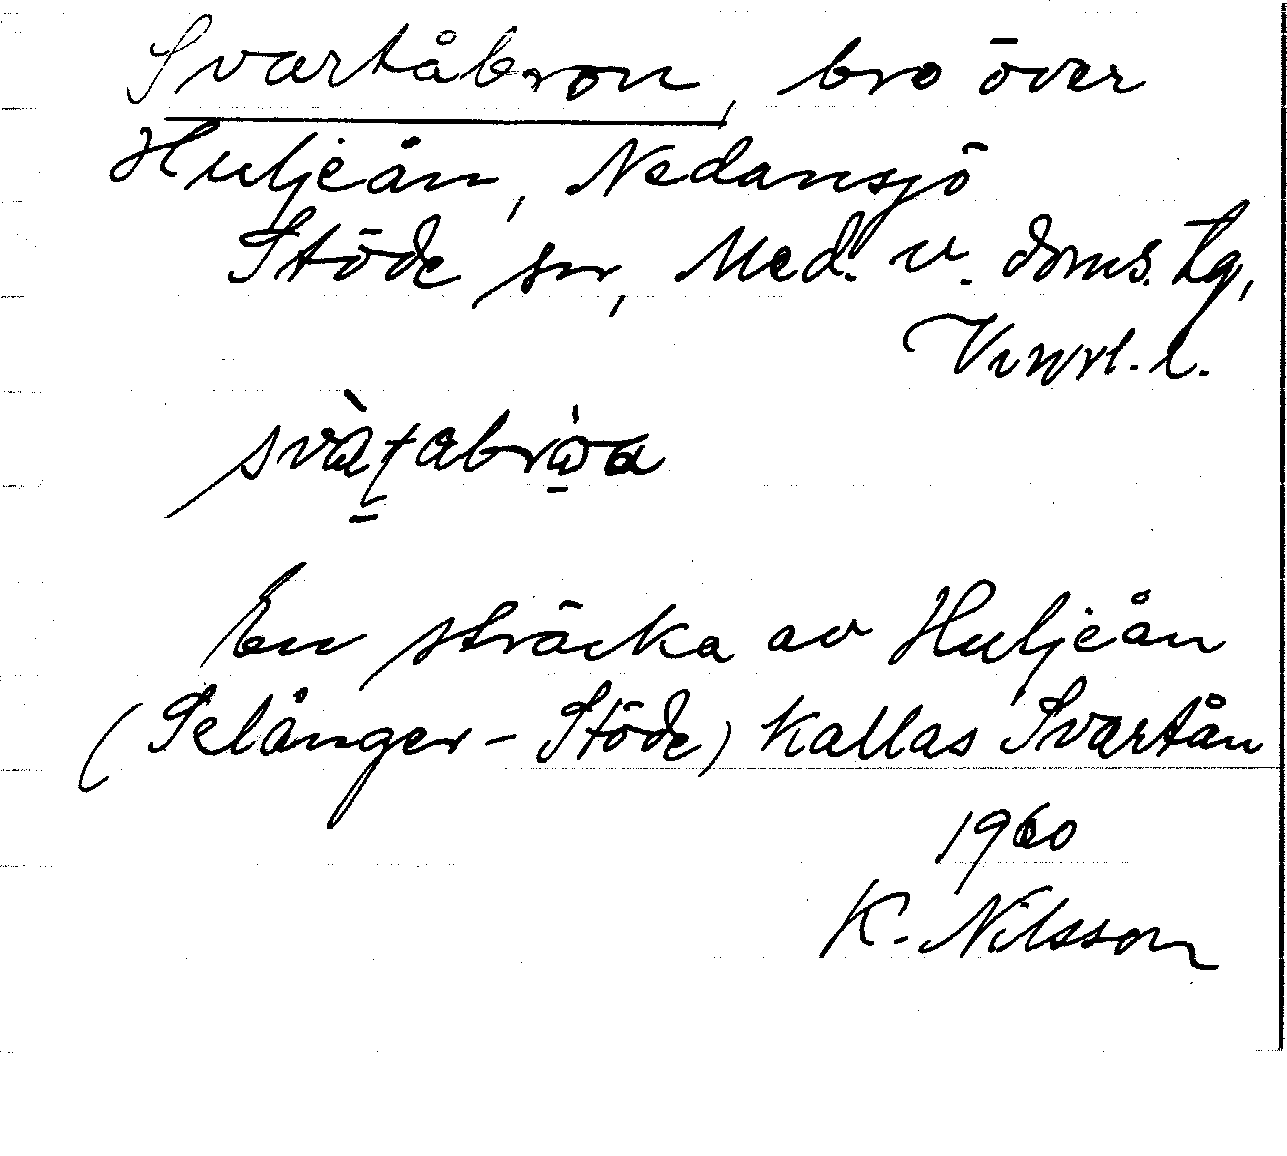 Svartåbron, bro över
Huljeån, Nedansjö
Stöde sn, Med. v. doms. tg,
Vnrl. l.
En sträcka av Huljeån
(Selånger - Stöde) kallas Svartån
1960
K. Nilsson